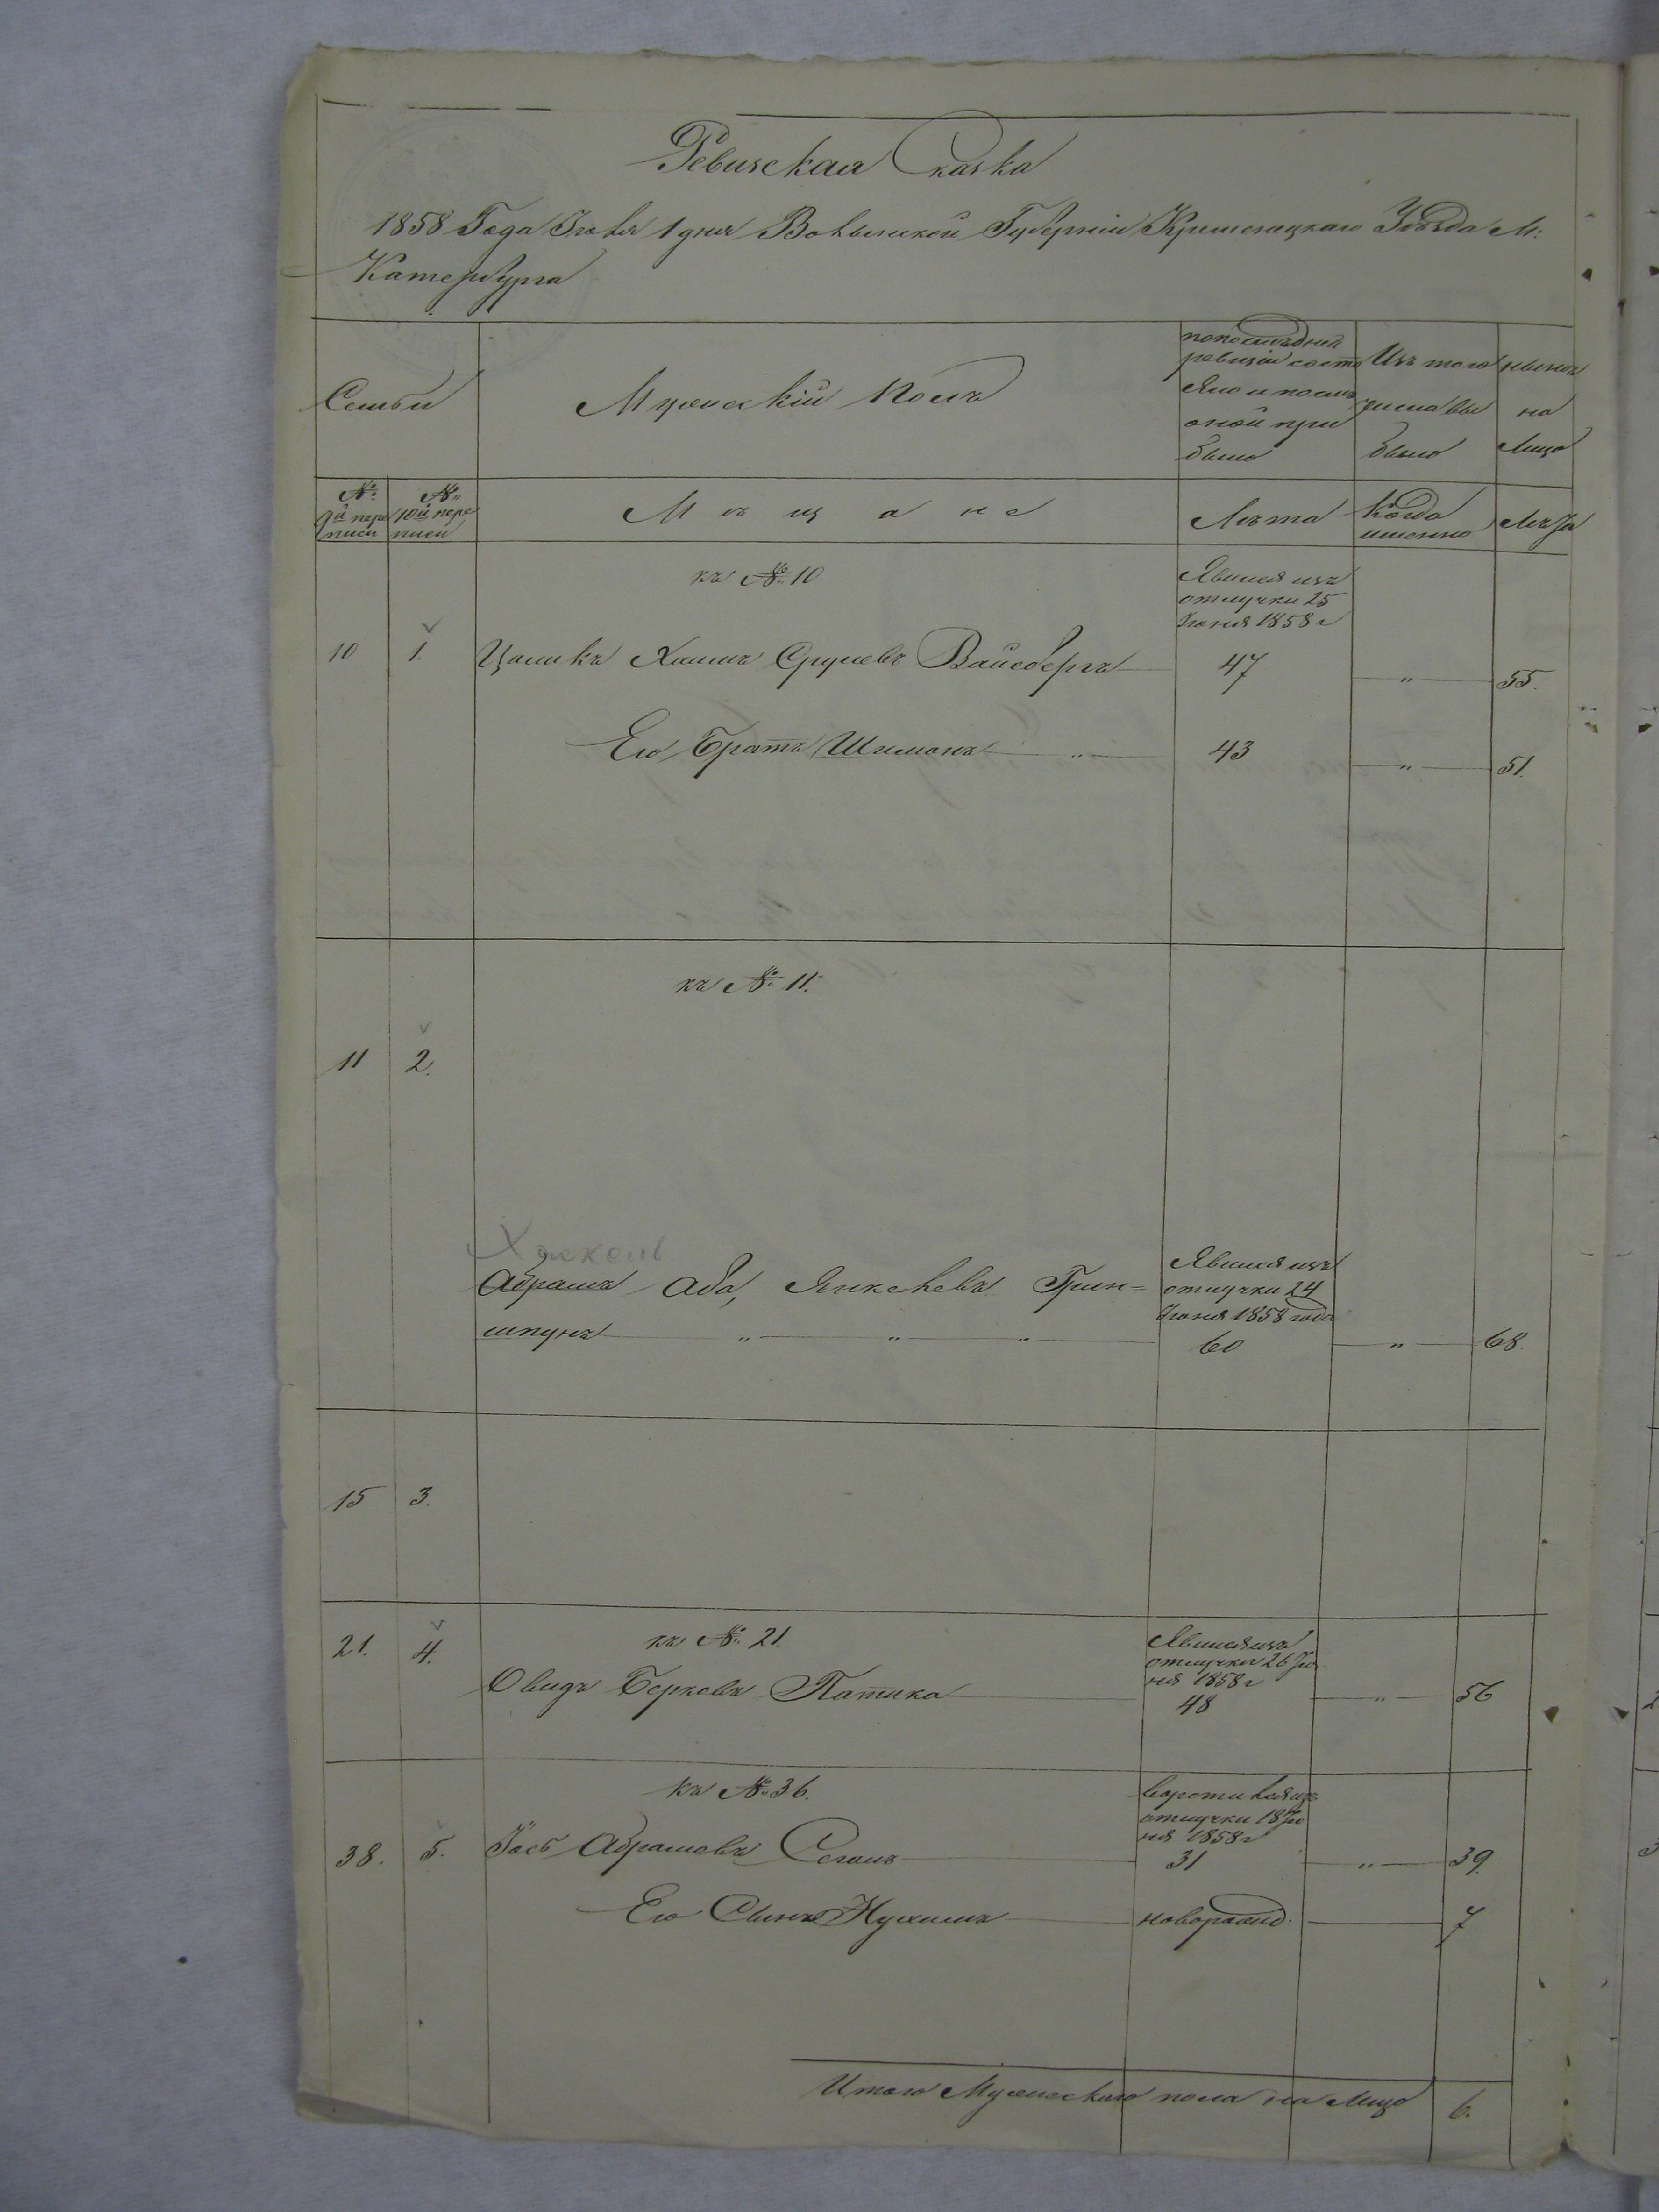 Ревизская Сказка
1858 Года Іюля 1 дня Волынской Губерніи Кременецкаго Уѣзда М:
Катербурга
Семьи
Мужескій Полъ
по послѣдней
ревизіи состо
яло и послѣ
оной при
было
Изъ того
числа вы
было
нынѣ
на
Лицо
№:
9й пере
писи
№:
10й пере
писи
Мѣщане
Лѣта
Когда
именно
Лѣта
къ №: 10
Явился изъ
отлучки 25
Іюня 1858 г
10 1. Цаликъ Хаимъ Срулевъ Вайсбергъ 47 " 55.
Его Братъ Шимонъ " 43 " 51.
къ № 11.
11 2.
Хаскель
Абрамъ Аба, Янкелевъ Грин=
шпунъ " " "
Явился изъ
отлучки 24
Іюня 1858 года
60 " 68.
15 3.
21. 4. къ №: 21.
Овидъ Берковъ Патика
Явился изъ
отлучки 26 Ію
ня 1858 г
48 " 56
къ №: 36.
38. 5. Іосъ Абрамовъ Сегалъ
воротился изъ
отлучки 18 Ію
ня 1858 г
31 " 39.
Его Сынъ Нухимъ новорожд. 7
Итого Мужескаго пола на Лицо 6.